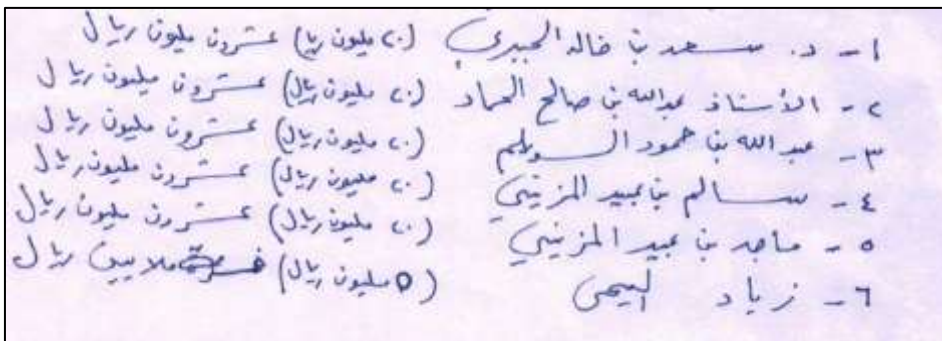 ١- د. سعد بن خالد الجبري (٢٠ مليون ريال) عشرون مليون ريال
٢- الأستاذ عبدالله بن صالح الحماد (٢٠ مليون ريال) عشرون مليون ريال
٣- عبدالله بن حمود السويلم (٢٠ مليون ريال) عشرون مليون ريال
٤- سالم بن عبيد المزيني (٢٠ مليون ريال) عشرون مليون ريال
٥- ماجد بن عبيد المزيني (٢٠ مليون ريال) عشرون مليون ريال
٦- زياد (٥ مليون ريال) خمسة ملايين ريال